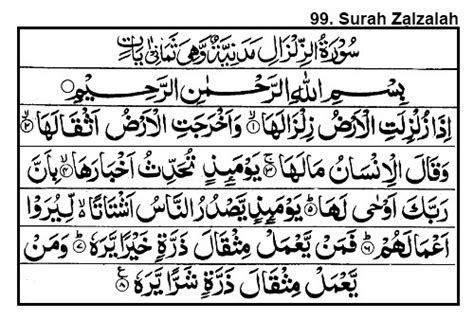 99. Surah Zalzalah
سُوْرَةُ الزِّلْزَالِ مَدَنِيَّةٌ وَّهِيَ ثَمَانِيْ اٰيَاتٍ
بِسْمِ اللّٰهِ الرَّحْمٰنِ الرَّحِيْمِ
اِذَا زُلْزِلَتِ الْاَرْضُ زِلْزَالَهَا ۙ﴿۱﴾ وَاَخْرَجَتِ الْاَرْضُ اَثْقَالَهَا ۙ﴿۲﴾
وَقَالَ الْاِنْسَانُ مَا لَهَا ۚ﴿۳﴾ يَوْمَئِذٍ تُحَدِّثُ اَخْبَارَهَا ۙ﴿۴﴾ بِاَنَّ
رَبَّكَ اَوْحٰى لَهَا ؕ﴿۵﴾ يَوْمَئِذٍ يَّصْدُرُ النَّاسُ اَشْتَاتًا ۙ۬ لِّيُرَوْا
اَعْمَالَهُمْ ؕ﴿۶﴾ فَمَنْ يَّعْمَلْ مِثْقَالَ ذَرَّةٍ خَيْرًا يَّرَهٗ ؕ﴿۷﴾ وَمَنْ
يَّعْمَلْ مِثْقَالَ ذَرَّةٍ شَرًّا يَّرَهٗ ﴿۸﴾